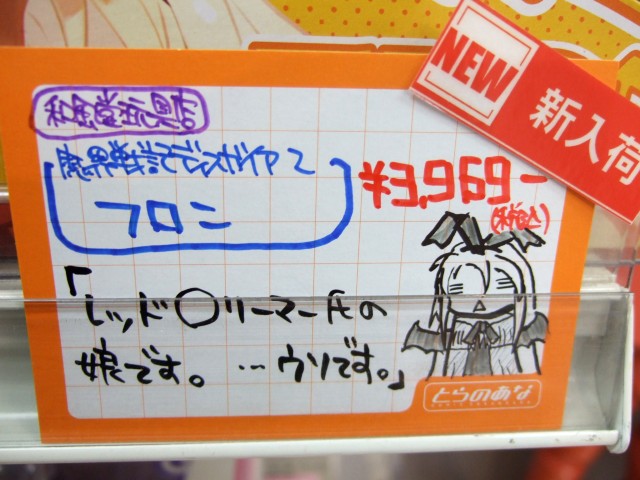 NEW
新入荷
和風堂玩具店
魔界戦記ディスガイア2
フロン
¥3,969-
(税込)
「レッド〇リーマー氏の
娘です。…ウソです。」
とらのあな